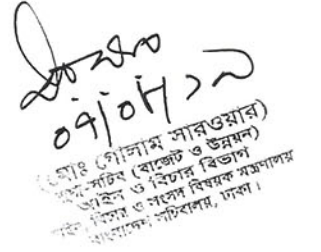 ০৭/০৮/১৯
(মোঃ গোলাম সারওয়ার)
সচিব (বাজেট ও উন্নয়ন)
আইন ও বিচার বিভাগ
আইন, বিচার ও সংসদ বিষয়ক মন্ত্রণালয়
বাংলাদেশ সচিবালয়, ঢাকা।